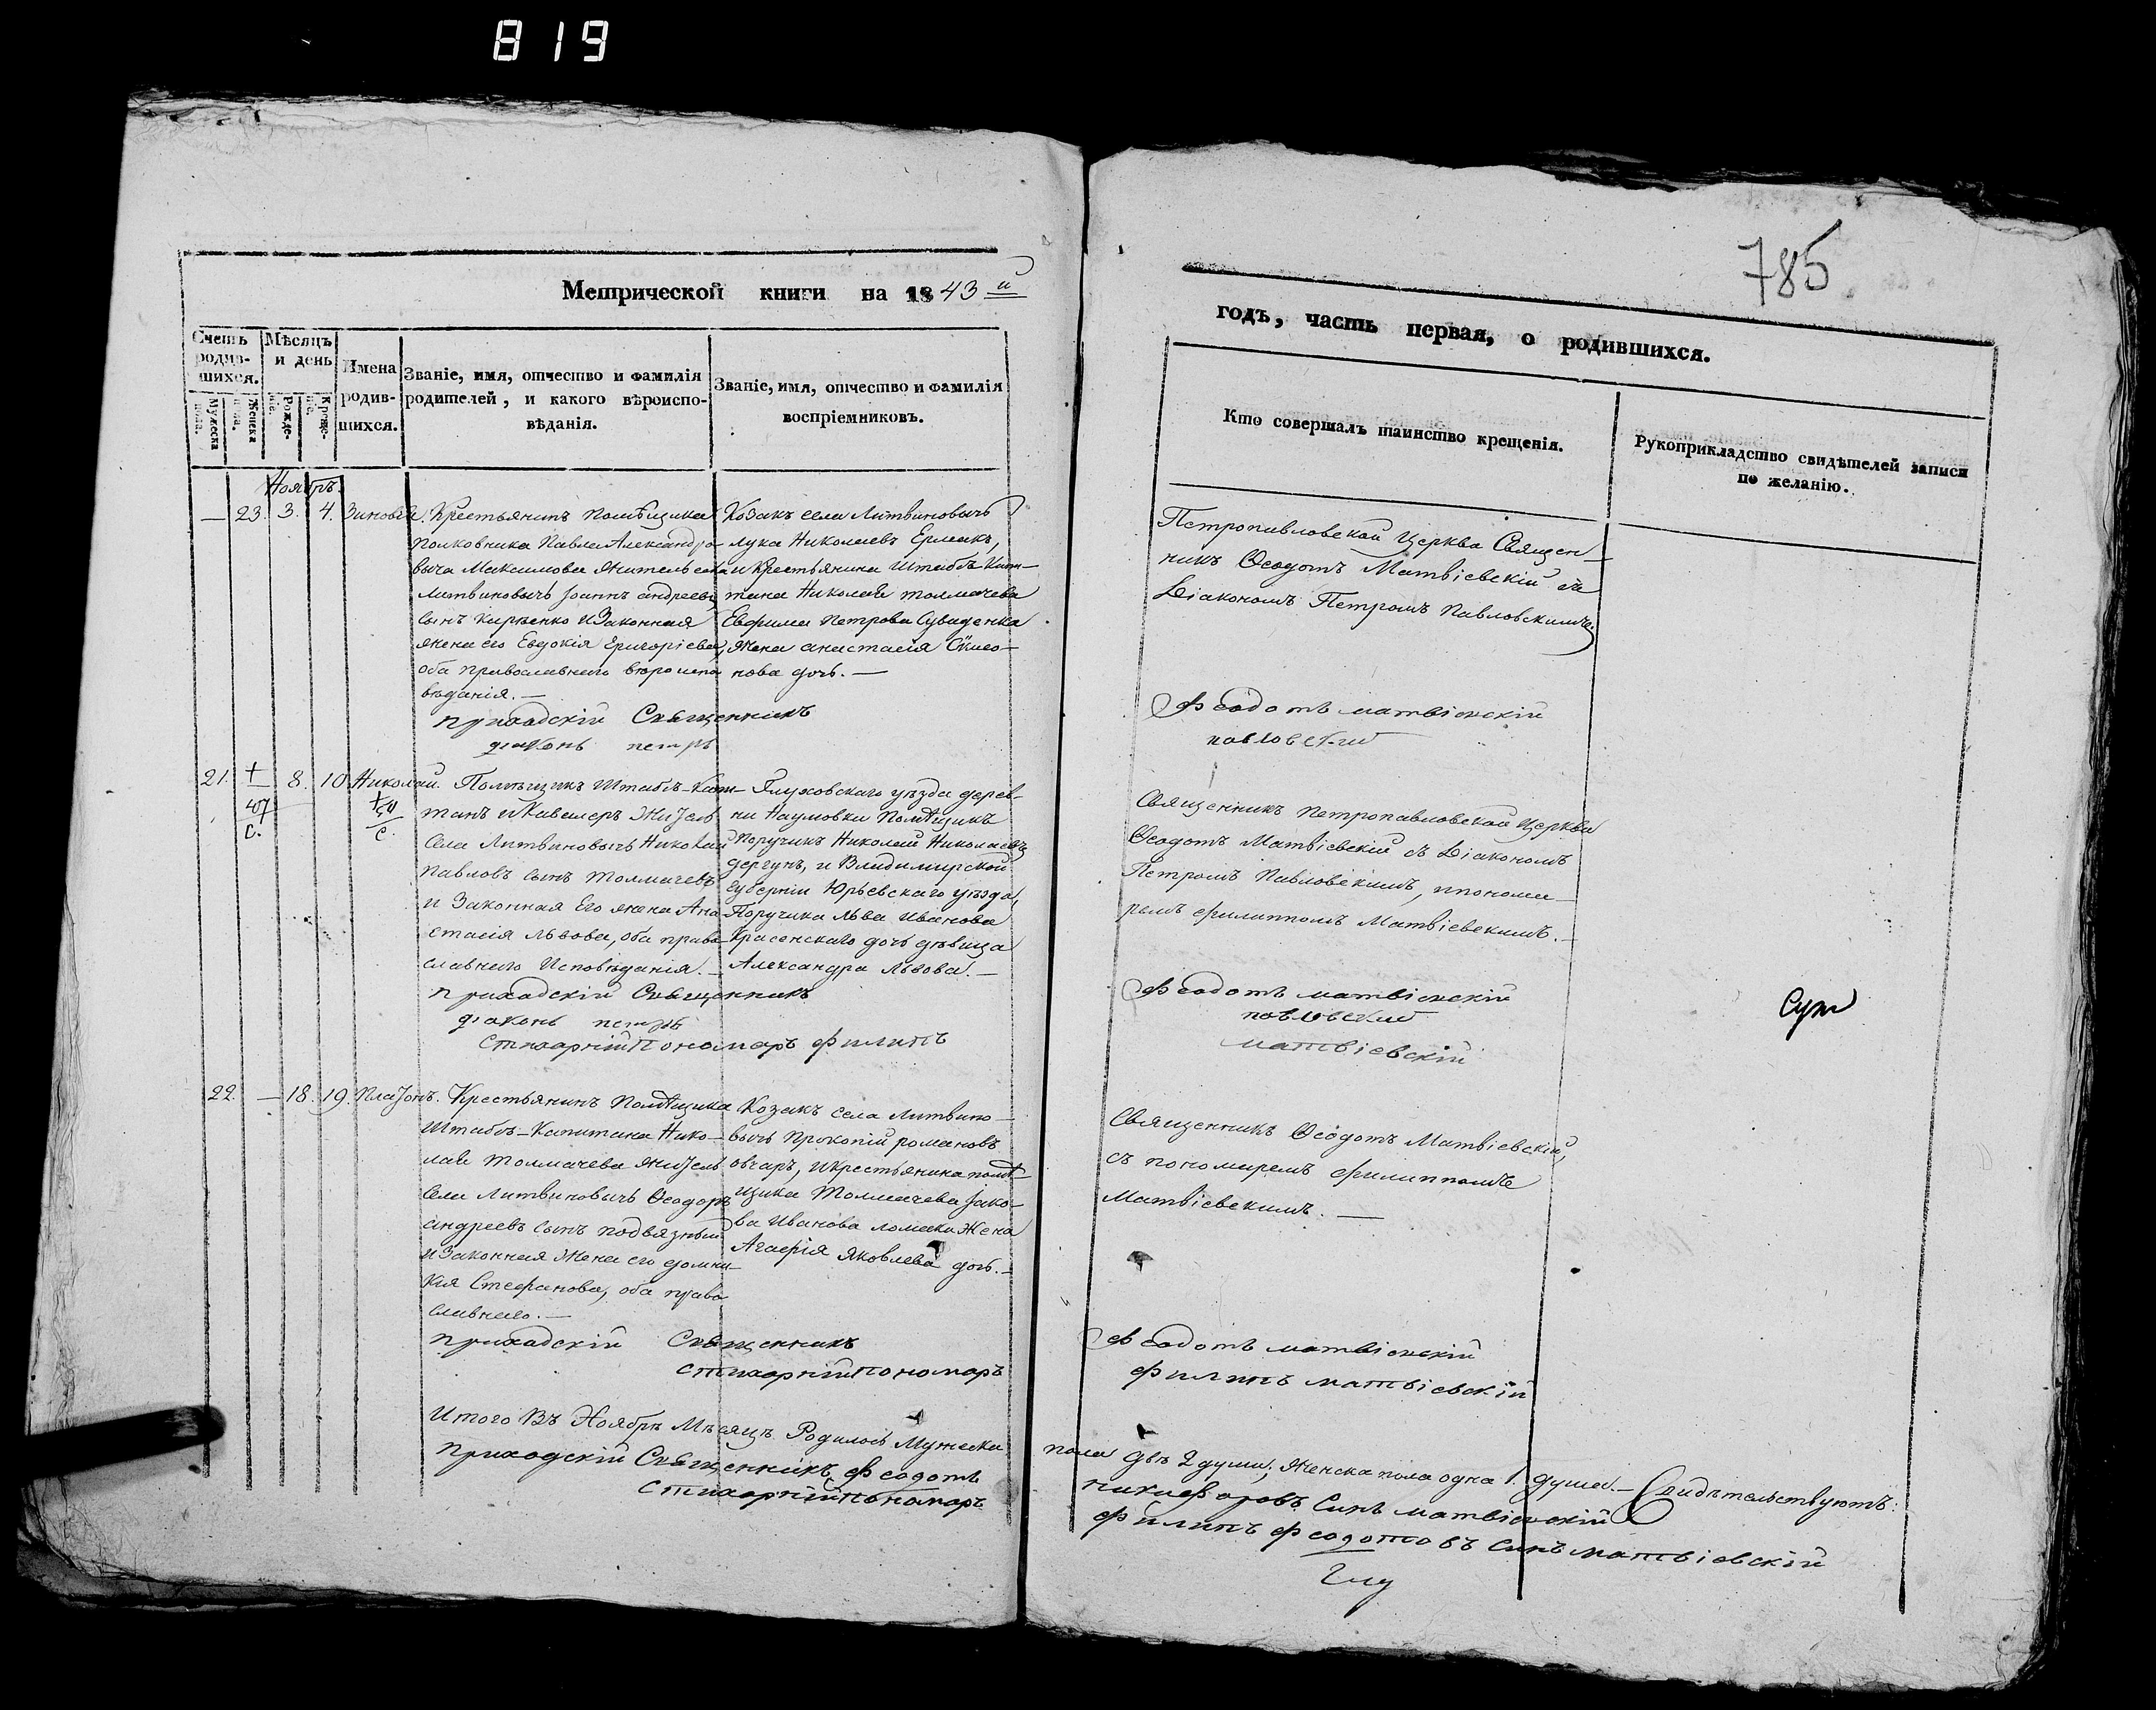 819
785
Метрической книги на 1843й
годъ, часть первая, о родившихся.
Счетъ родив-шихся.
Мужеска пола.
Женска пола.
Мѣсяцъ и день
Рожде-нія.
Креще-нія.
Имена родив-шихся.
Званіе, имя, отчество и фамилія
родителей, и какого вѣроиспо-
вѣданія.
Званіе, имя, отчество и фамилія
воспріемниковъ.
Кто совершалъ таинство крещенія.
Рукоприкладство свидѣтелей записи
по желанію.
Ноябрь.
— 23. 3. 4. Зиновія.
Крестьянинъ Помѣщика
Полковника Павла Александро-
выча Максимова Житель села
Литвиновичъ Іоаннъ андреевъ
сынъ Кирѣенко и Законная
жена его Евдокія Григоріева,
оба православнаго вѣроиспо
вѣданія. —
Козакъ села Литвиновичъ
лука Николаевъ Ермакъ,
и Крестьянина Штабсъ Капи-
тана Николая толмачева
Евфима Петрова Суviденка
Жена анастасія Симео-
нова дочь. —
Петропавловской Церкви Священ-
никъ Ѳеодотъ Матвіевскій съ
Діакономъ Петромъ Павловскимъ.
приходскій Священникъ Феодотъ матвіевскій
діаконъ петръ павловскій
21. 8. 10. Николай.
407
с.
Помѣщикъ Штабсъ-Капи-
танъ и Кавалеръ Житель
Села Литвиновичъ Николай
Павловъ сынъ Толмачевъ
и Законная Его жена Ана
стасія Львова, оба право-
славнаго Исповѣданія. —
Глуховскаго уѣзда дерев-
ни Наумовки Помѣщикъ
Поручикъ Николай Николаевъ
дергунъ, и Владимирской
губерніи Юрьевскаго уѣзда,
Поручика Льва Иванова
Красенскаго дочь дѣвица
Александра Львова. —
Священникъ Петропавловской Церкви
Ѳеодотъ Матвіевскій съ Діакономъ
Петромъ Павловскимъ, и понома-
ремъ филиппомъ Матвіевскимъ. —
приходскій Священникъ Феодотъ матвіевскій
діаконъ петръ павловскій
стихарній Пономаръ филипъ матвіевскій
22. — 18. 19. Платонъ.
Крестьянинъ Помѣщика
Штабсъ-Капитана Нико-
лая Толмачева Житель
Села Литвиновичъ Ѳеодоръ
андреевъ сынъ подвязный
и Законная Жена его домни-
кія Стефанова, оба право
славнаго. —
Козакъ села Литвино-
вичъ Прокопій романовъ
овчаръ, и Крестьянина помѣ-
щика Толмачева Іако-
ва Иванова ломака Жена
Агафія Яковлева дочь. —
Священникъ Ѳеодотъ Матвіевскій,
съ пономаремъ филиппомъ
Матвіевскимъ. —
приходскій Священникъ Феодотъ матвіевскій
стихарній Пономаръ филипъ матвіевскій
Итого Въ Ноябрѣ Мѣсяцѣ Родилось Мужеска пола двѣ 2 души, Женска пола одна 1. душа. — Свидѣтельствуютъ:
приходскій Священникъ Феодотъ никифоровъ Синъ матвіевскій
стихарній пономаръ филипъ феодотовъ синъ матвіевскій